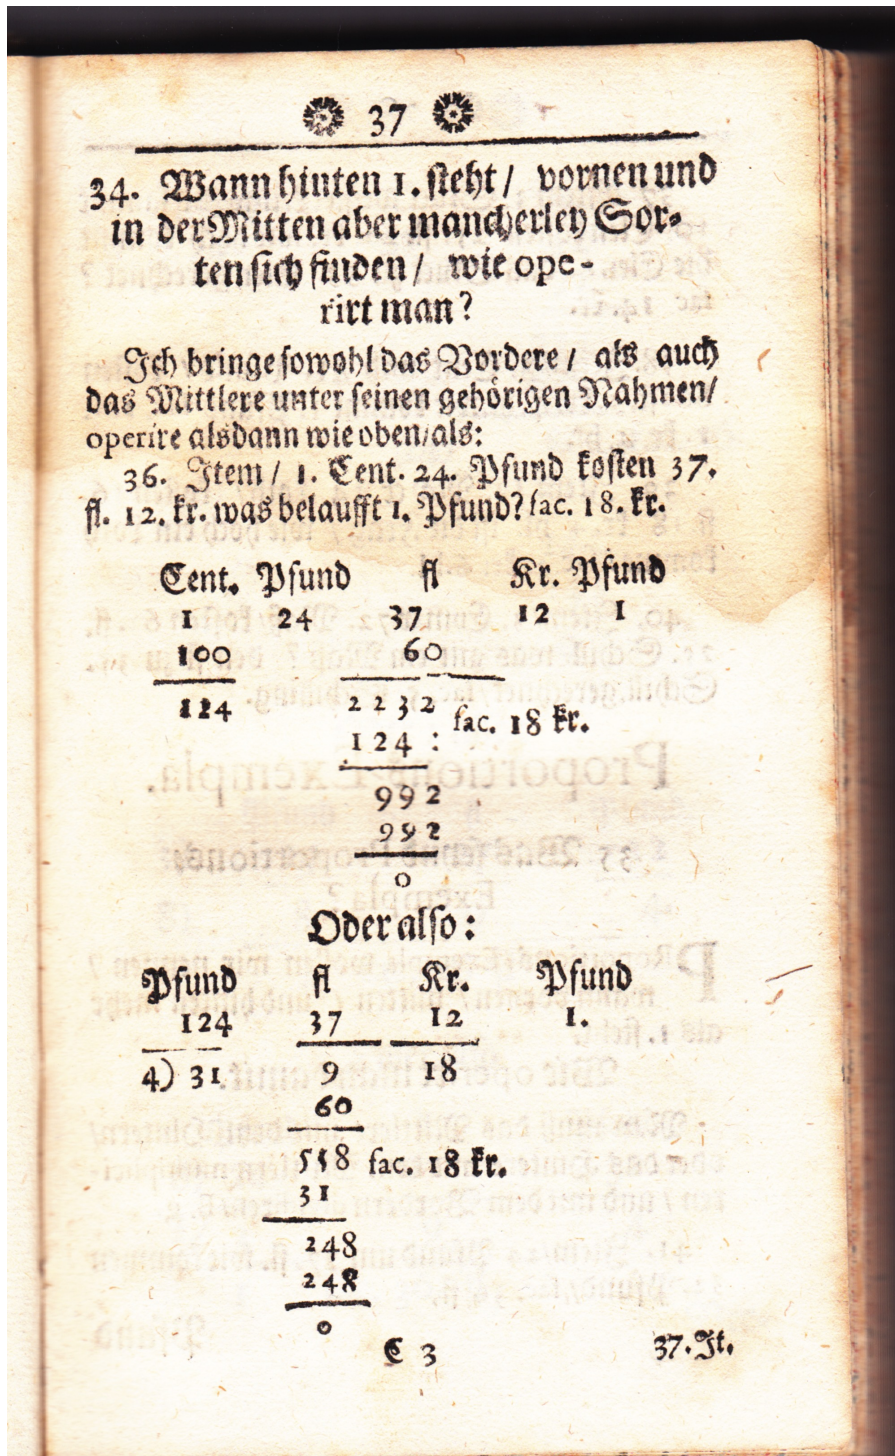 37
34. Wann hinten 1. steht / vornen und
in der Mitten aber mancherley Sor-
ten sich finden / wie ope-
rirt man?
Ich bringe sowohl das Vordere / als auch
das Mittlere unter seinen gehörigen Nahmen/
operire alsdann wie oben/als:
36. Item / 1. Cent. 24. Pfund kosten 37.
fl. 12. kr. was belaufft 1. Pfund? fac. 18. kr.
Cent. Pfund fl Kr. Pfund
1 24 37 12 1
100 60
124 2232
fac. 18 kr.
124 :
992
992
0
Oder also:
Pfund fl Kr. Pfund
124 37 12 1.
4) 31 9 18
60
558 fac. 18 kr.
31
248
248
0
C 3 37. It.